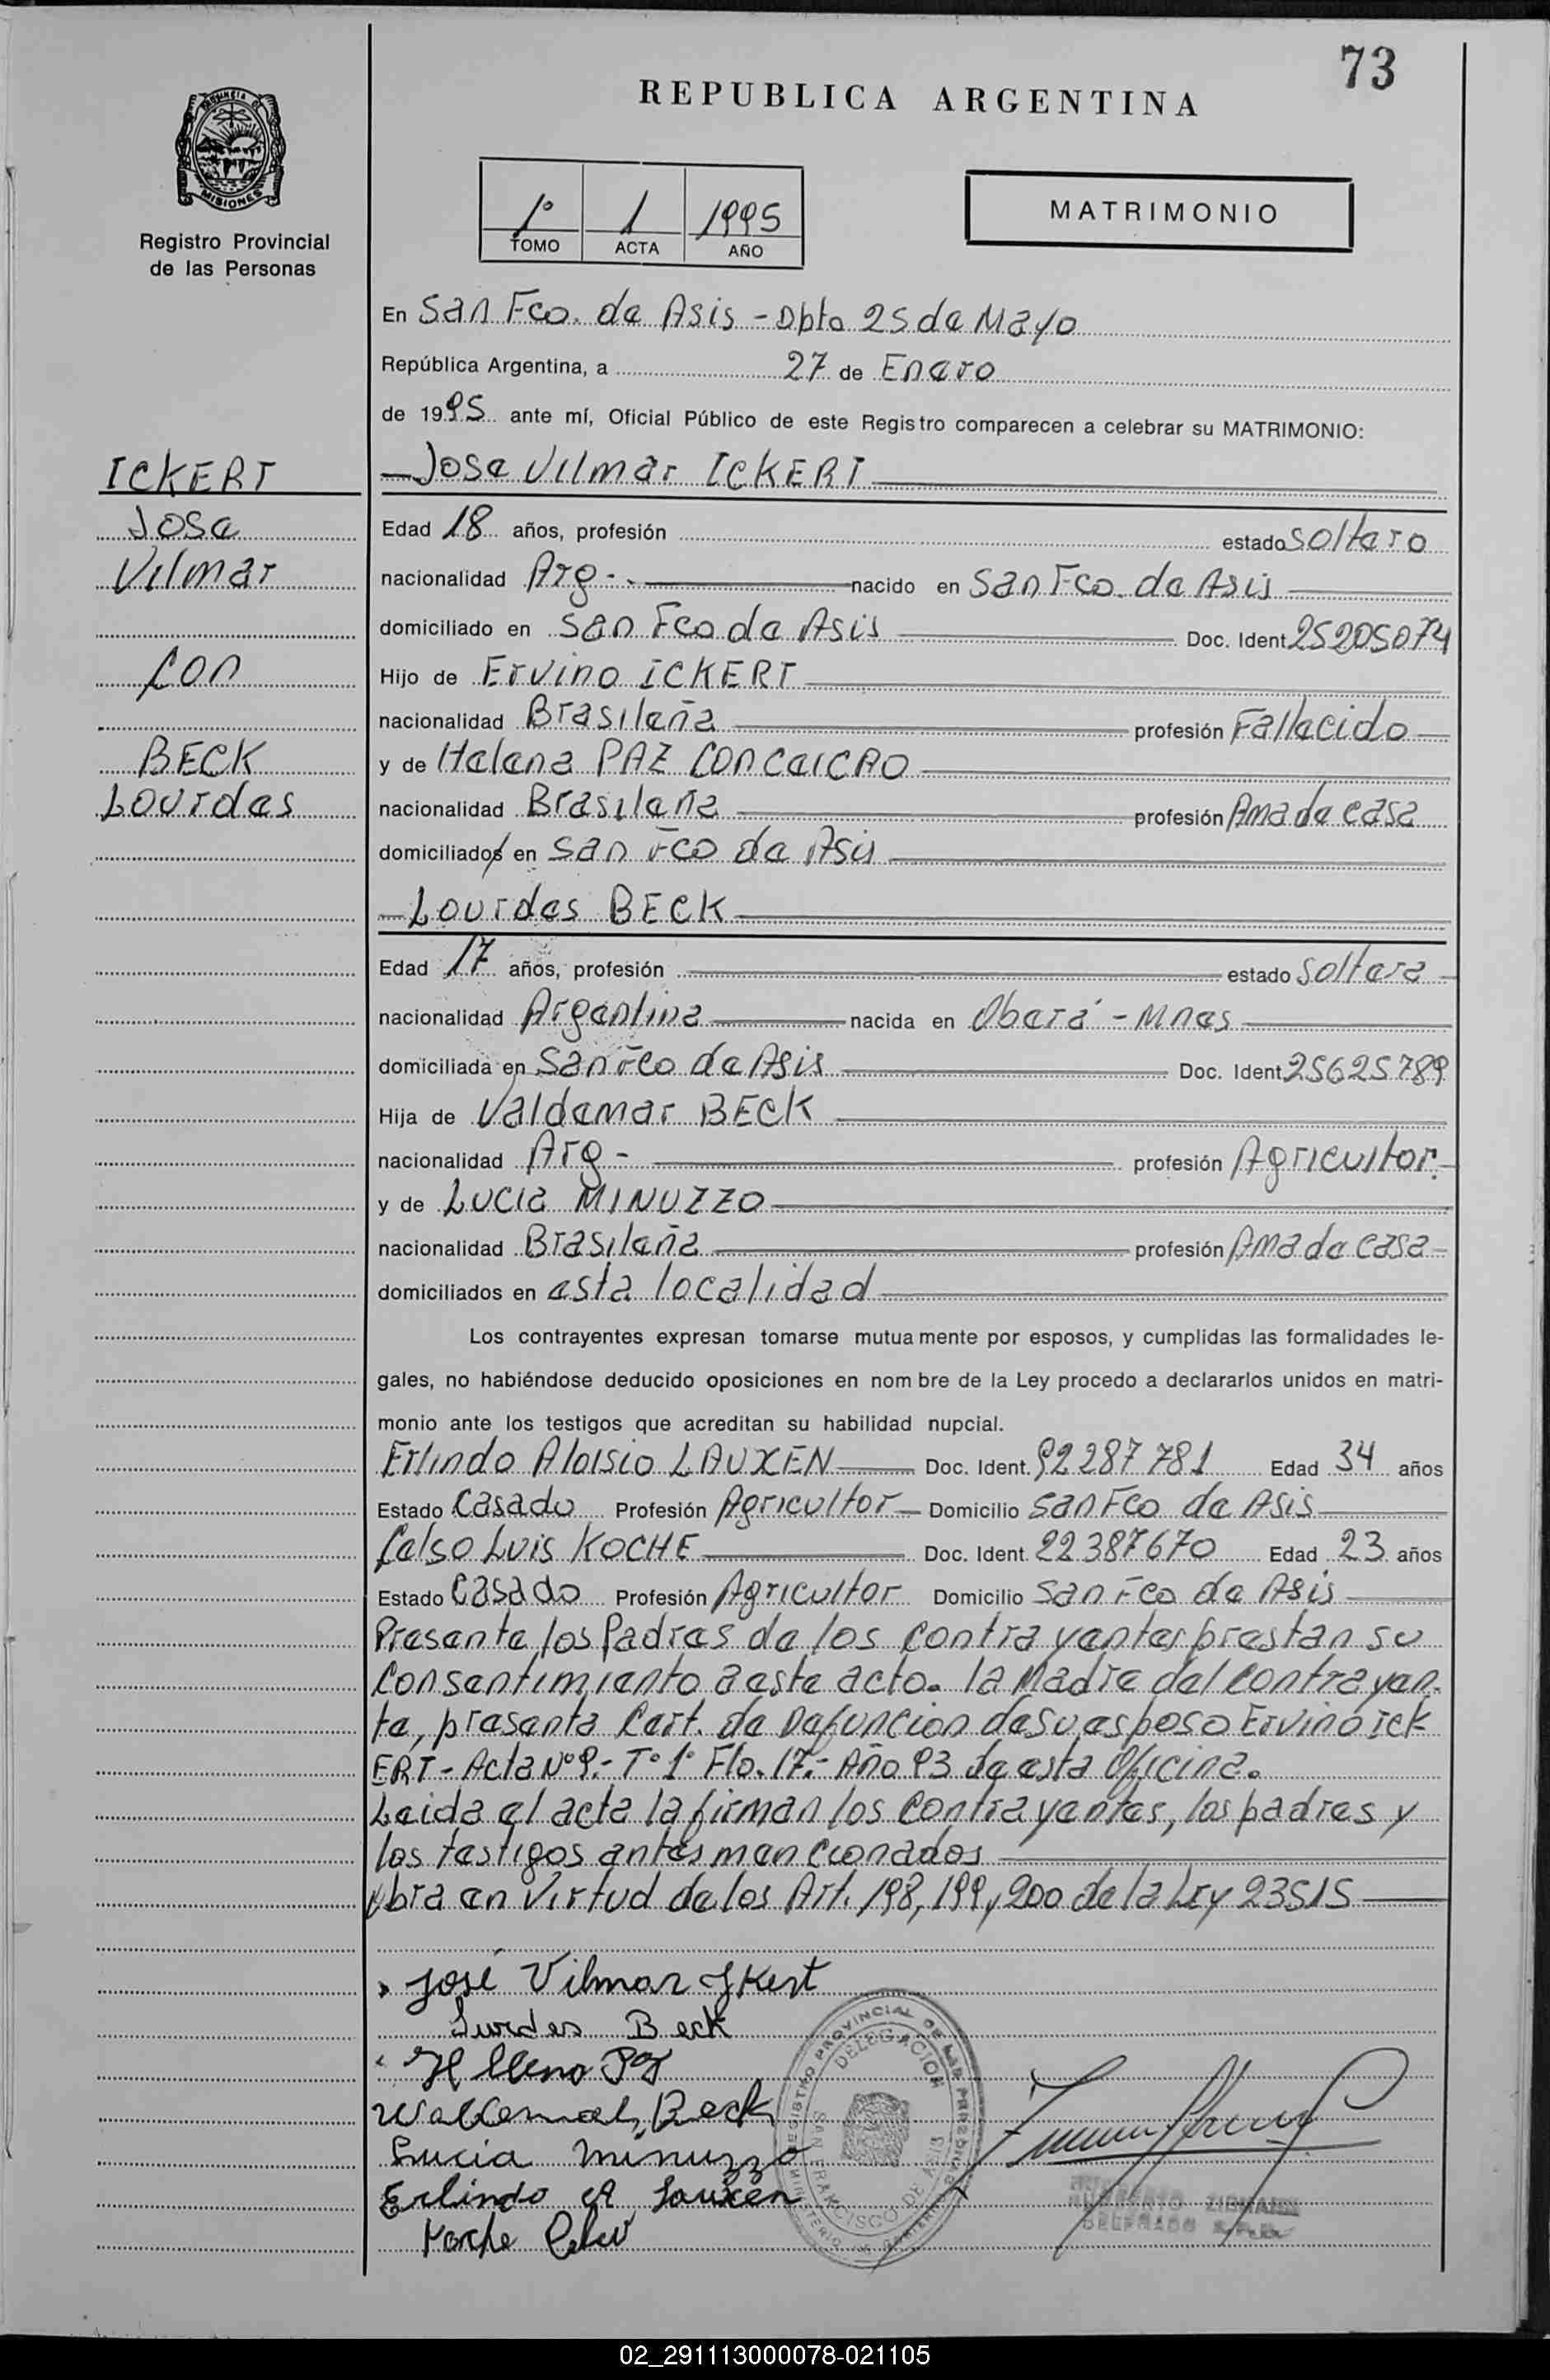 73
REPUBLICA ARGENTINA
MISIONES
Registro Provincial
de las Personas
1º 1 1995
TOMO ACTA AÑO
MATRIMONIO
En San Fco. de Asis - Dpto 25 de Mayo
República Argentina, a 27 de Enero
de 1995 ante mí, Oficial Público de este Registro comparecen a celebrar su MATRIMONIO:
ICKERT
Jose
Vilmar
con
BECK
Lourdes
Jose Vilmar ICKERT
Edad 18 años, profesión estado soltero
nacionalidad Arg- nacido en San Fco. de Asis
domiciliado en San Fco de Asis Doc. Ident 25205074
Hijo de Ervino ICKERT
nacionalidad Brasileña profesión Fallecido
y de Helena PAZ CONCEICAO
nacionalidad Brasileña profesión Ama de casa
domiciliados en San Fco de Asis
Lourdes BECK
Edad 17 años, profesión estado Soltera
nacionalidad Argentina nacida en Oberá - Mnes
domiciliada en San Fco de Asis Doc. Ident 25625789
Hija de Valdemar BECK
nacionalidad Arg- profesión Agricultor.
y de Lucia MINUZZO
nacionalidad Brasileña profesión Ama de casa
domiciliados en esta localidad
Los contrayentes expresan tomarse mutuamente por esposos, y cumplidas las formalidades le-
gales, no habiéndose deducido oposiciones en nombre de la Ley procedo a declararlos unidos en matri-
monio ante los testigos que acreditan su habilidad nupcial.
Erlindo Aloisio LAUXEN Doc. Ident. 92287781 Edad 34 años
Estado Casado Profesión Agricultor Domicilio San Fco de Asis
Celso Luis KOCHE Doc. Ident. 22.387670 Edad 23 años
Estado Casado Profesión Agricultor Domicilio San Fco de Asis
Presente los Padres de los contrayentes prestan su
consentimiento a este acto. la Madre del contrayen-
te, presenta Cert. de Defuncion de su esposo Ervino ick
ERT - Acta Nº 9.- Tº 1º Flo. 17.- Año 93 de esta Oficina.
Leida el acta la firman los contrayentes, los padres y
los testigos antes mencionados
Obra en Virtud de los Art. 198, 199, 200 de la Ley 23515
José Vilmar Jkert
Lurdes Beck
Beck
Lucia Minuzzo
Erlindo A Lauxen
REGISTRO PROVINCIAL DE LAS PERSONAS
DELEGACION
SAN FRANCISCO DE ASIS
MINISTERIO DE GOBIERNO
DELEGADO
02_291113000078-021105